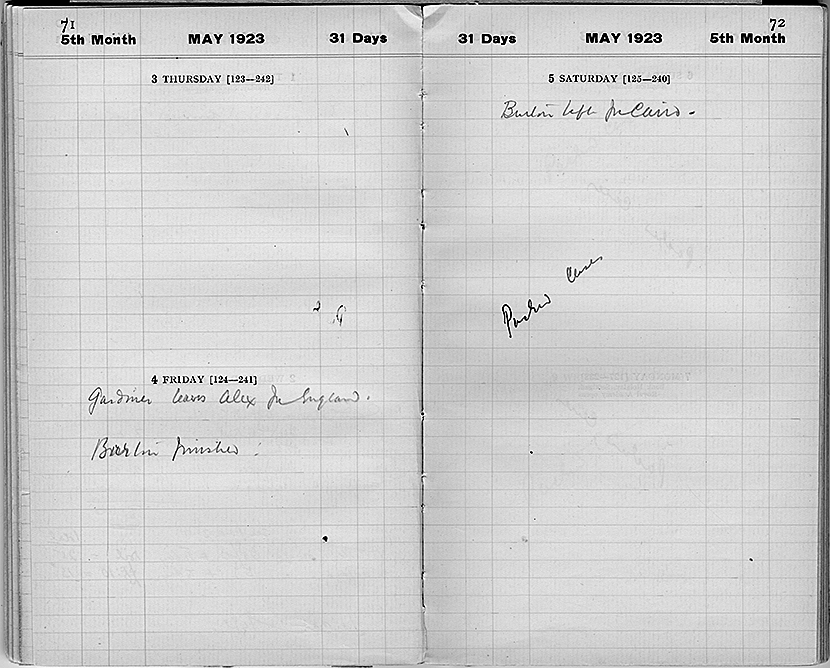 71
5th Month MAY 1923 31 Days
3 THURSDAY [123—242]
4 FRIDAY [124—241]
Gardiner leaves Alex for England.
Burton finished.
72
31 Days MAY 1923 5th Month
5 SATURDAY [125—240]
Burton left for Cairo.
Packed cases